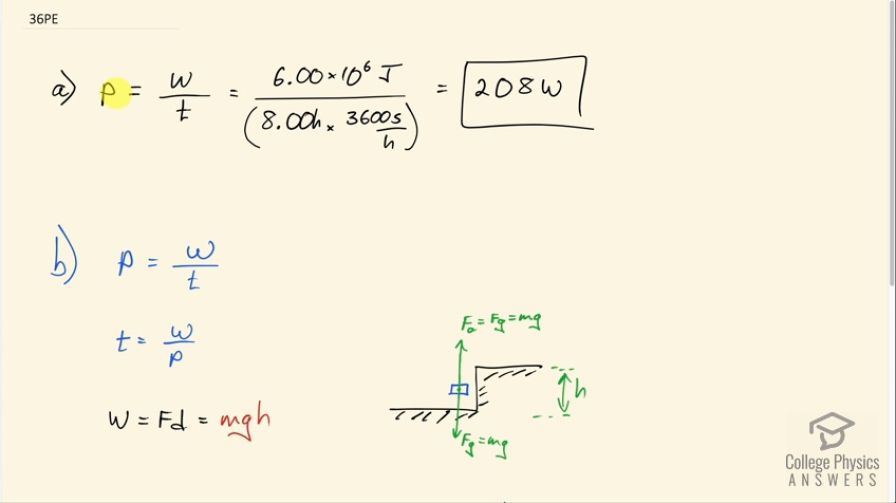 36PE
a) P = W/t = 6.00×10⁶ J / (8.00h × 3600s/h) = 208W
b) P = W/t
t = W/P
Fa = Fg = mg
h
W = Fd = mgh
Fg = mg
College Physics
ANSWERS